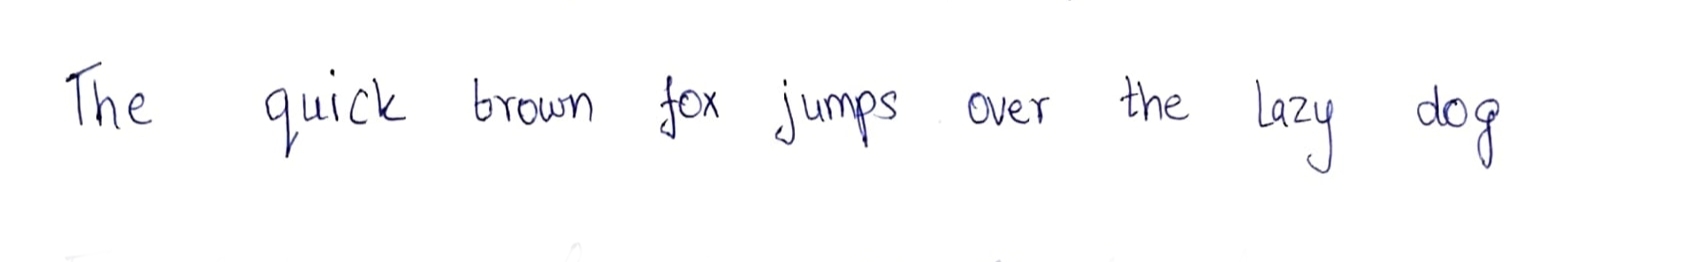 The quick brown fox jumps over the lazy dog